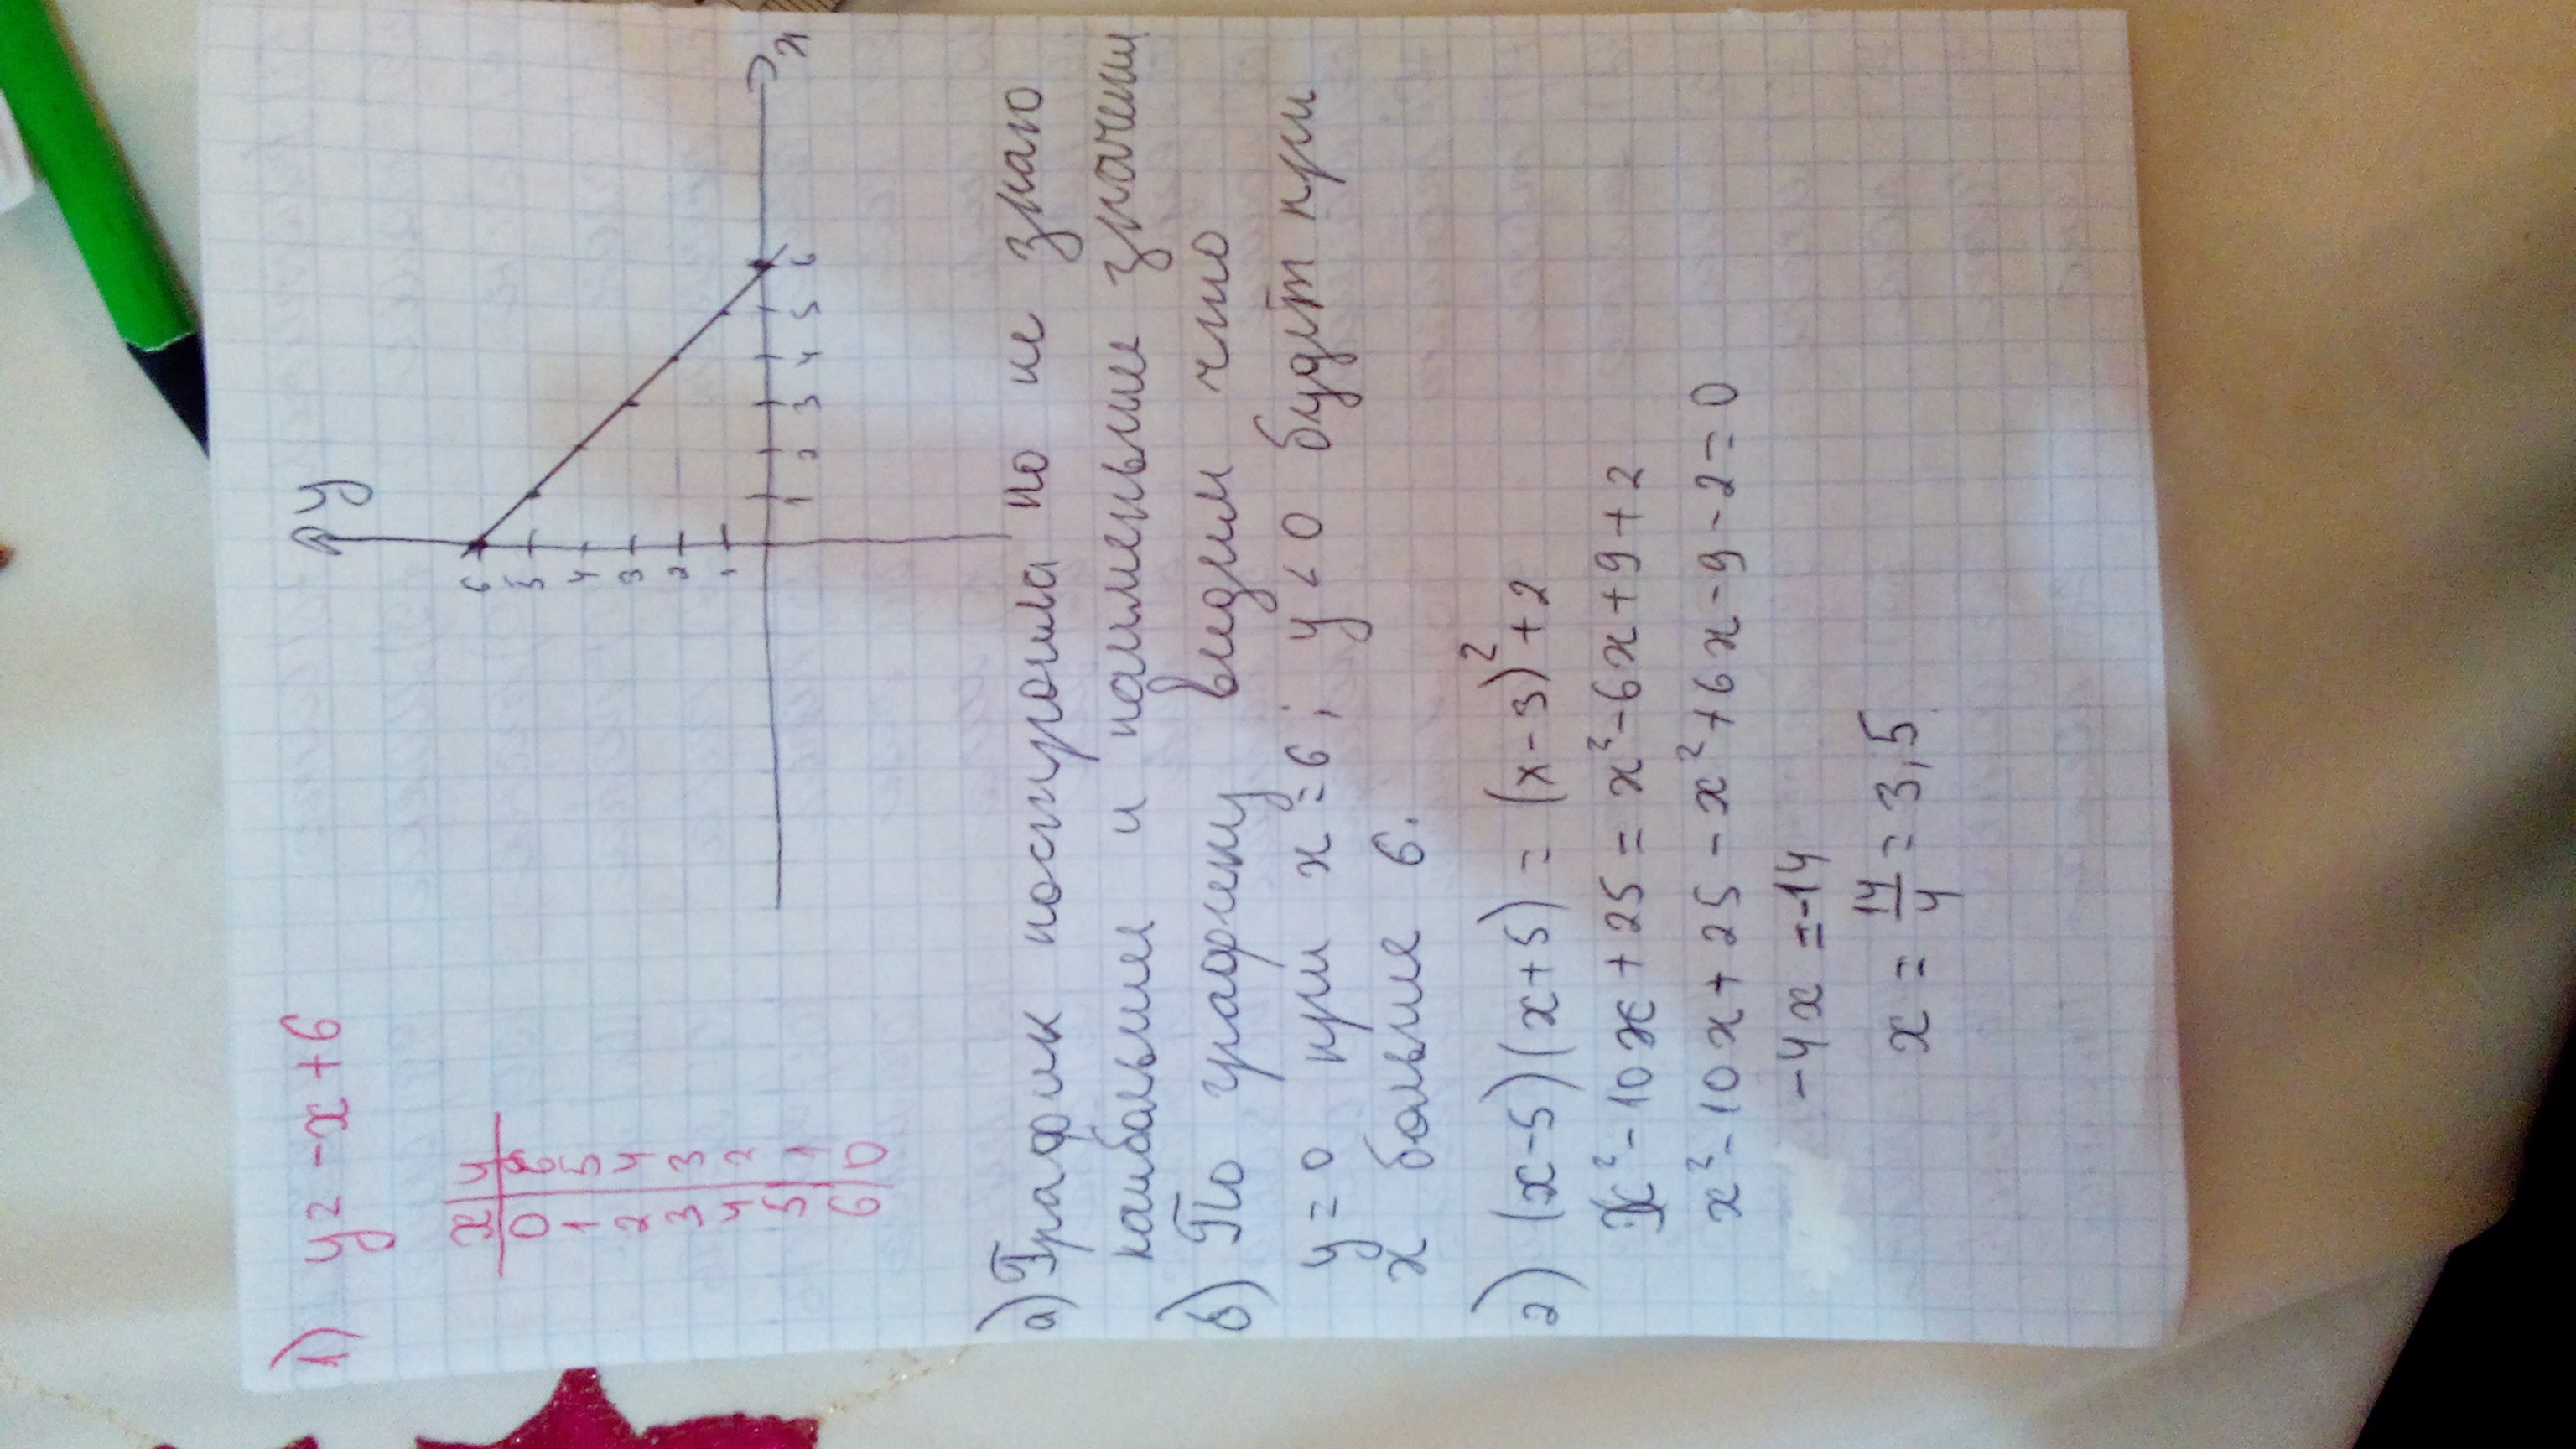 1) y = -x + 6
x | y
0 | 6
1 | 5
2 | 4
3 | 3
4 | 2
5 | 1
6 | 0
y
6
5
4
3
2
1
1 2 3 4 5 6
x
а) График построила но не знаю
наибольшие и наименьшие значении
б) По графику видим что
y = 0 при x = 6; y < 0 будет при
x больше 6.
2) (x-5)(x+5) = (x-3)² + 2
x² - 10x + 25 = x² - 6x + 9 + 2
x² - 10x + 25 - x² + 6x - 9 - 2 = 0
-4x = -14
x = 14/4 = 3,5